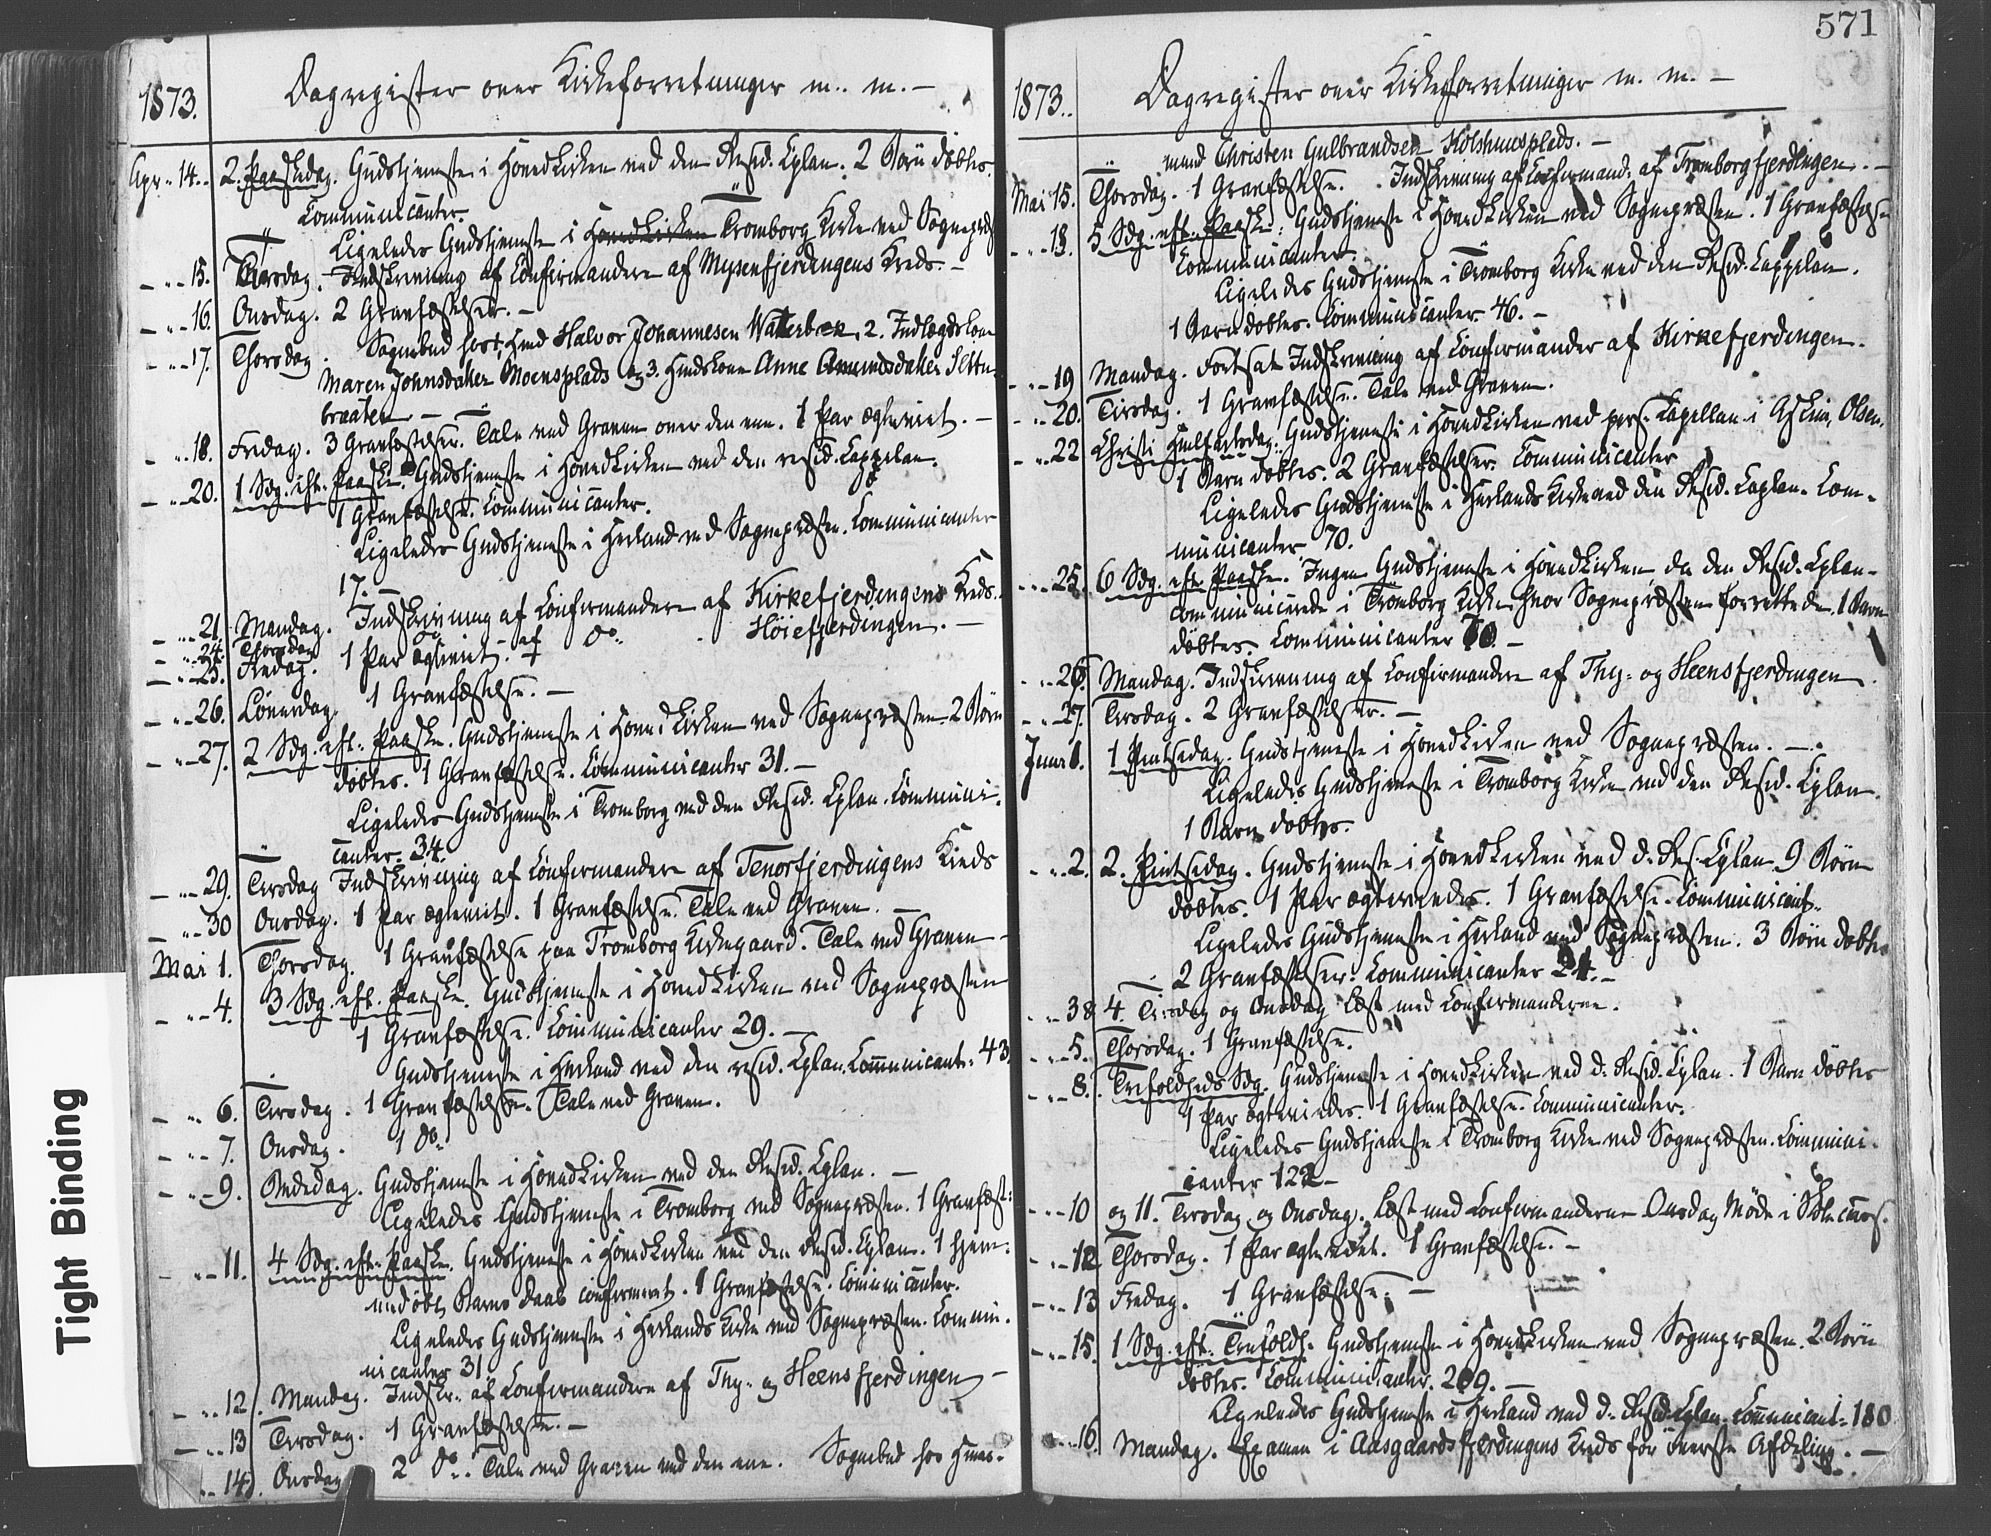 1873. Dagregister over Kirkeforretninger m. m. -
Apr. 14. 2. Paaskedag. Gudstjeneste i Hovedkirken ved den Resid. Cplan. 2 Børn døbtes.
Communicanter.
Ligeledes Gudstjeneste i Hovedkirken Tromborg Kirke ved Sognepræst
- " - 15. Tirsdag. Indskrivning af Confirmandere af Mysenfjerdingens Kreds. -
- " - 16. Onsdag. 2 Gravfæstelser. -
- " - 17. Thorsdag. Sognebud hos 1, Hmd Halvor Johannesen Waterbæk, 2. Indlægdskone
Maren Johnsdatter Moensplads og 3. Huuskone Anne Amundsdatter Slettu-
braaten -
- " - 18. Fredag. 3 Gravfæstelser. Tale ved Graven over den ene. 1 Par ægteviet. -
- " - 20. 1 Sdg. eft. Paaske. Gudstjeneste i Hovedkirken ved den resid. Cappelan.
1 Gravfæstelse. Communicanter.
Ligeledes Gudstjeneste i Herland ved Sognepræsten. Communicanter
17. -
- " - 21. Mandag. Indskrivning af Confirmandere af Kirkefjerdingens Kreds.
- " - 24. Thorsdag do af do Höiefjerdingen. -
- " - 25. Fredag. 1 Par ægteviet. -
- " - 26. Löverdag. 1 Gravfæstelse. -
- " - 27. 2 Sdg. eft. Paaske. Gudstjeneste i Hovedkirken ved Sognepræsten. 2 Børn
døbtes. 1 Gravfæstelse. Communicanter 31. -
Ligeledes Gudstjeneste i Tromborg ved den Resid. Cplan. Communi-
canter. 34.
- " - 29. Tirsdag Indskrivning af Confirmandere af Tenorfjerdingens Kreds
- " - 30 Onsdag. 1 Par ægteviet. 1 Gravfæstelse. Tale ved Graven. -
Mai 1. Thorsdag. 1 Gravfæstelse paa Tromborg Kirkegaard. Tale ved Graven -
- " - 4. 3 Sdg. eft. Paaske. Gudstjeneste i Hovedkirken ved Sognepræsten
1 Gravfæstelse. Communicanter 29. -
Gudstjeneste i Herland ved den resid. Cplan. Communicant. 43.
- " 6. Tirsdag. 1 Gravfæstelse. Tale ved Graven.
- " - 7. Onsdag. 1 do
- " - 9. Bededag. Gudstjeneste i Hovedkirken ved den Resid. Cplan. -
Ligeledes Gudstjeneste i Tromborg ved Sognepræsten. 1 Gravfæst:
- " - 11. 4 Sdg. eft. Paaske. Gudstjeneste i Hovedkirken ved den Resid. Cplan. 1 hjem-
medøbt Barns Daab confirmeret. 1 Gravfæstelse. Communicanter.
Ligeledes Gudstjeneste i Herlands Kirke ved Sognepræsten. Commu-
nicanter 31.
- " - 12. Mandag. Indskr. af Confirmandere af Thy- og Heensfjerdingen -
- " - 13 Tirsdag. 1 Gravfæstelse. -
" - 14. Onsdag 2 do. Tale ved Graven ved den ene. Sognebud hos Huus-
571
1873. Dagregister over Kirkeforretninger m. m. -
mand Christen Gulbrandsen Kolshuusplads. -
Mai 15. Thorsdag. 1 Gravfæstelse. Indskrivning af Confirmand. af Tromborgfjerdingen. -
- " - 18. 5 Sdg. eft. Paaske. Gudstjeneste i Hovedkirken ved Sognepræsten. 1 Gravfæstelse
Communicanter.
Ligeledes Gudstjeneste i Tromborg Kirke ved den Resid. Cappelan.
1 Barn døbtes. Communicanter. 46. -
- " - 19 Mandag. Fortsat Indskrivning af Confirmander af Kirkefjerdingen.
- " - 20. Tirsdag. 1 Gravfæstelse. Tale ved Graven.
- " - 22 Christi Himlfartsdag. Gudstjeneste i Hovedkirken ved pers. Capellan i Askim, Olsen.
1 Barn døbtes. 2 Gravfæstelser. Communicanter
Ligeledes Gudstjeneste i Herlands Kirke ved den Resid. Caplan. Com-
municanter 70.
- " - 25. 6 Sdg. eft. Paaske. Ingen Gudstjeneste i Hovedkirken da den Resid. Cplan.
communicerede i Tromborg Kirke hvor Sognepræsten forrettede. 1 Barn
døbtes. Communicanter 70. -
- " - 26. Mandag. Indskrivning af Confirmandere af Thy- og Heensfjerdingen.
- " - 27. Tirsdag. 2 Gravfæstelser. -
Juni 1. 1 Pintsedag. Gudstjeneste i Hovedkirken ved Sognepræsten. -
Ligeledes Gudstjeneste i Tromborg Kirke ved den Resid. Cplan.
1 Barn døbtes.
- " - 2. 2. Pintsedag. Gudstjeneste i Hovedkirken ved d. Res. Cplan. 9 Børn
døbtes. 1 Par ægteviedes. 1 Gravfæstelse. Communicant.
Ligeledes Gudstjeneste i Herland ved Sognepræsten. 3 Børn døbtes
- 2 Gravfæstelser. Communicanter 24. -
- " - 3 & 4 Tirsdag og Onsdag læst med Confirmanderne.
- " - 5. Thorsdag. 1 Gravfæstelse.
- " - 8. Trefoldheds Sdg. Gudstjeneste i Hovedkirken ved d. Resid. Cplan. 1 Barn døbtes
1 Par ægteviedes. 1 Gravfæstelse. Communicanter.
Ligeledes Gudstjeneste i Tromborg Kirke ved Sognepræsten. Communi-
canter 122 -
- " - 10 og 11. Tirsdag og Onsdag. Læst med Confirmanderne Onsdag Møde i
- " - 12 Thorsdag. 1 Par ægteviet. 1 Gravfæstelse. -
- " - 13 Fredag. 1 Gravfæstelse. -
- " - 15. 1 Sdg. eft. Trefoldh. Gudstjeneste i Hovedkirken ved Sognepræsten. 2 Børn
døbtes. Communicanter. 209. -
Ligeledes Gudstjeneste i Herland ved d. Resid. Cplan. Communicant. 180
- " - 16. Mandag. Examen i Aasgaardsfjerdingens Kreds for øverste Afdeling. -
Tight Binding